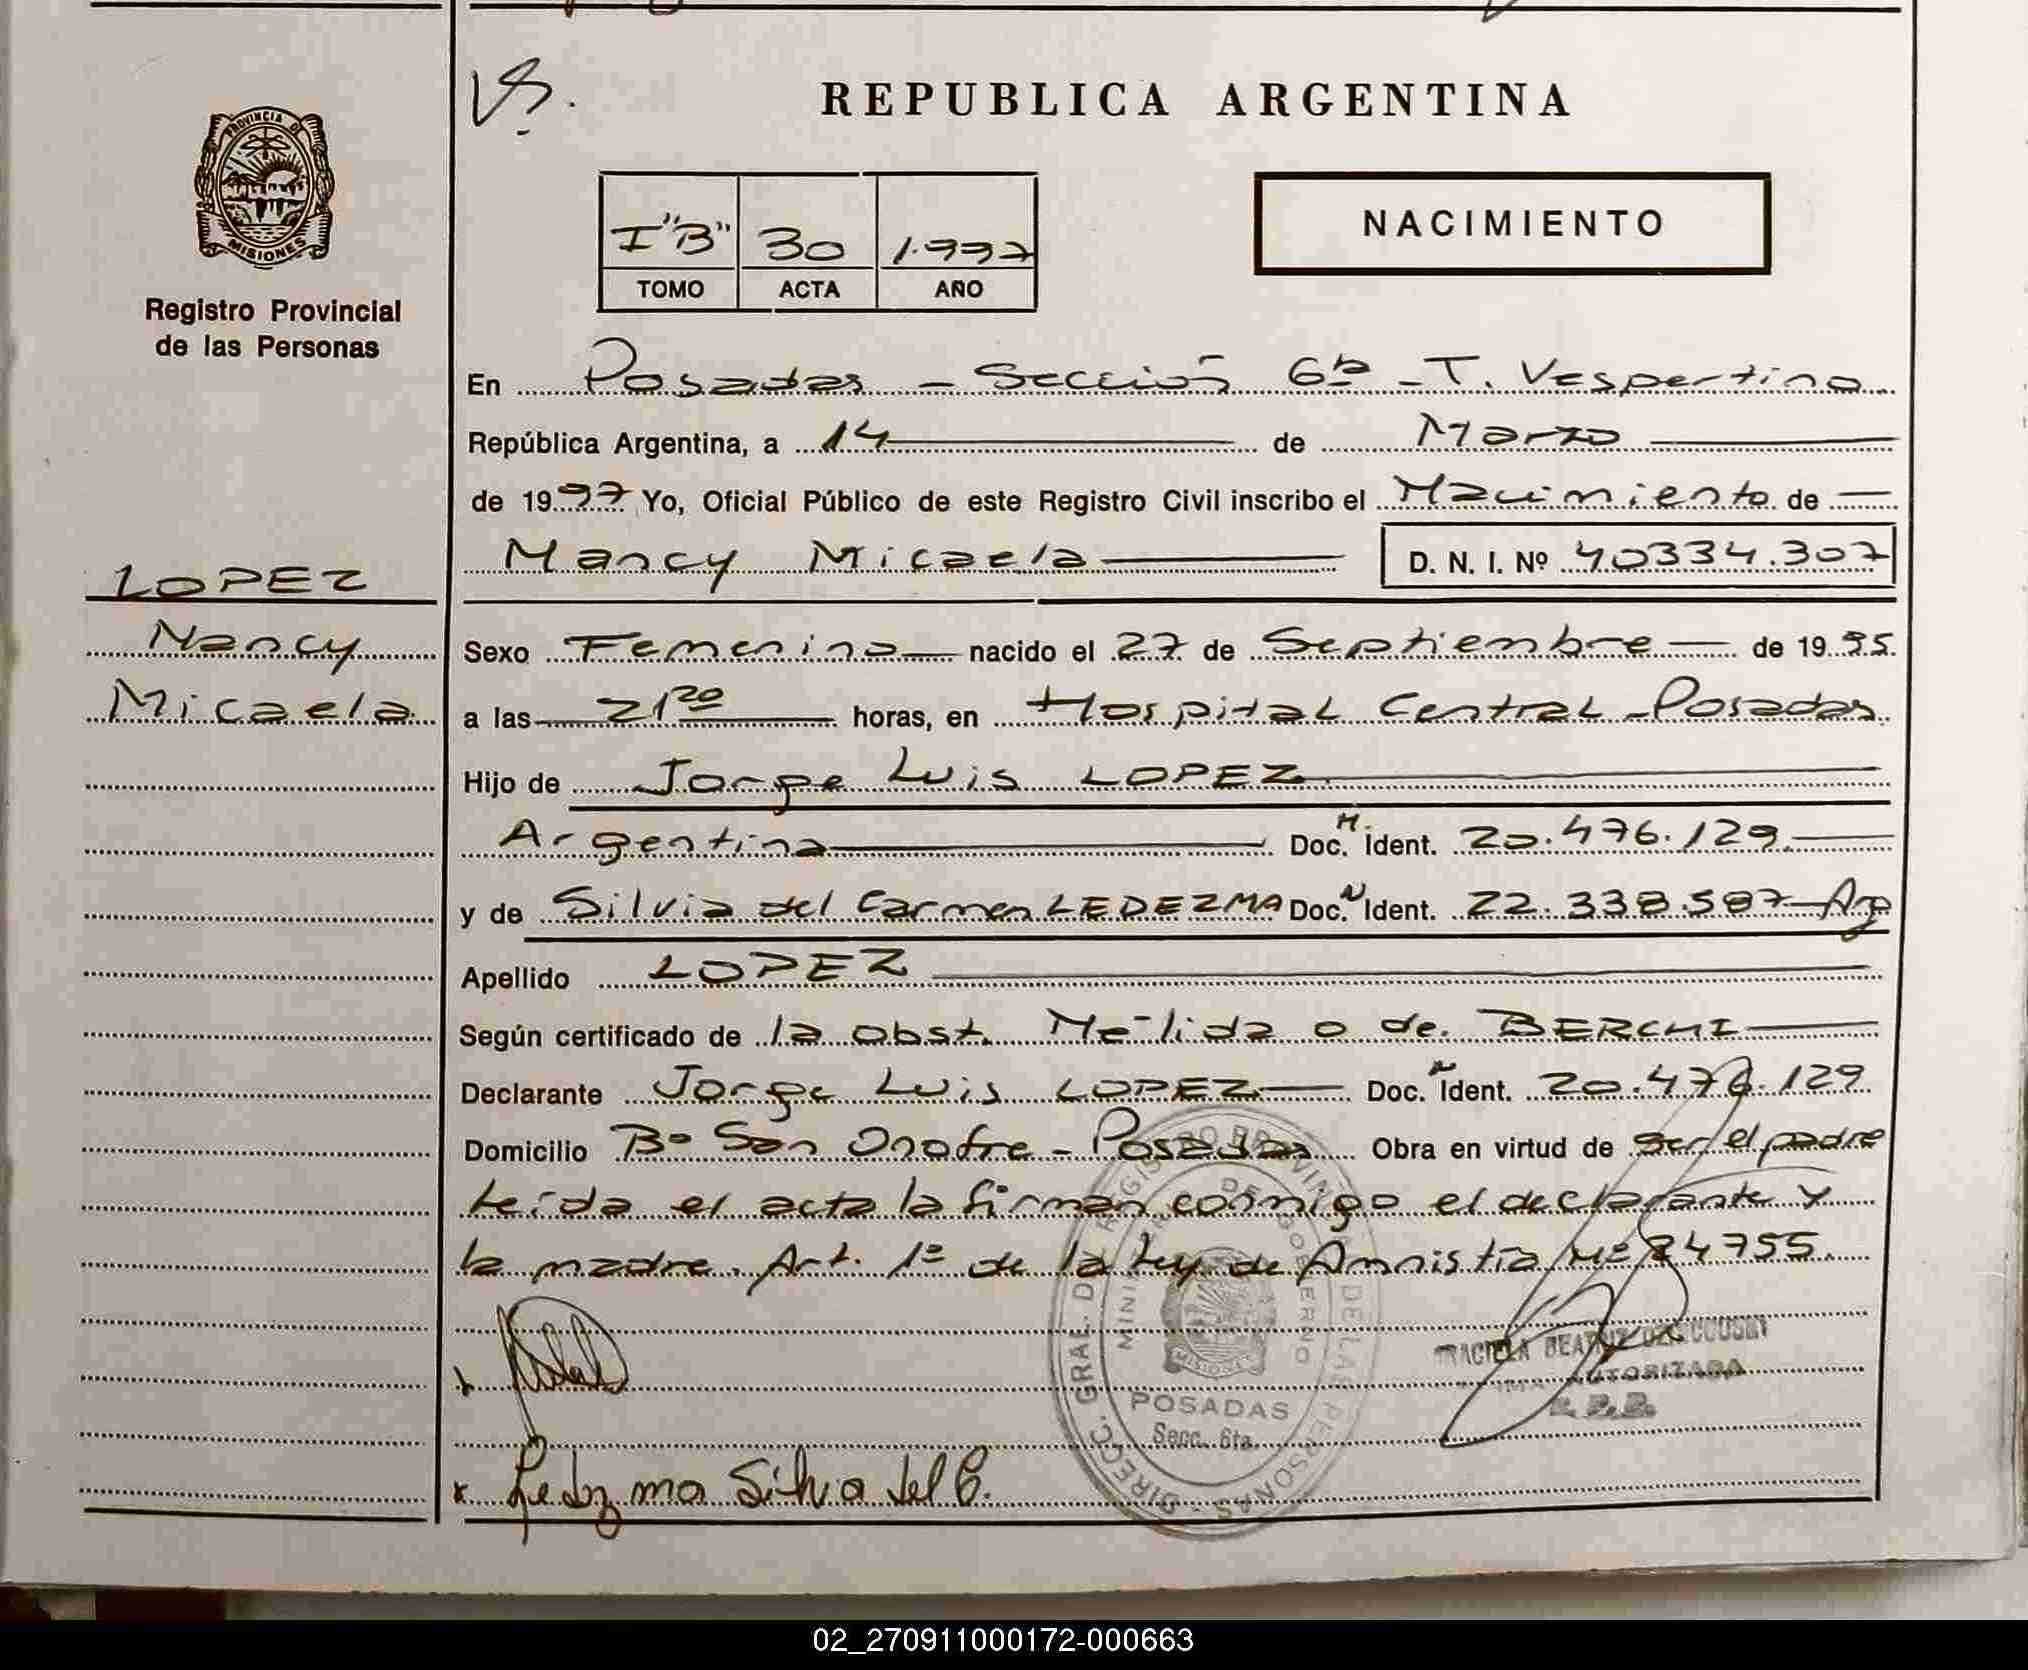 REPUBLICA ARGENTINA
PROVINCIA DE
MISIONES
Registro Provincial
de las Personas
I "B" 30 1.997
TOMO ACTA AÑO
NACIMIENTO
En Posadas - Sección 6ta - T. Vespertino
República Argentina, a 14 de Marzo
de 1997 Yo, Oficial Público de este Registro Civil inscribo el Nacimiento de
Nancy Micaela D. N. I. Nº 40334.307
LOPEZ
Nancy
Micaela
Sexo Femenino nacido el 27 de Septiembre de 1995.
a las 21²⁰ horas, en Hospital Central - Posadas
Hijo de Jorge Luis LOPEZ
Argentina Doc. N. Ident. 20.476.129
y de Silvia del Carmen LEDEZMA Doc. N Ident. 22.338.587 - Ag
Apellido LOPEZ
Según certificado de la obst. Nélida o de. BERCHI
Declarante Jorge Luis LOPEZ Doc. N Ident. 20.476.129
Domicilio Bº San Onofre - Posadas Obra en virtud de ser el padre
Leída el acta la firman conmigo el declarante y
la madre. Art. 1º de la Ley de Amnistia Nº 24755.
DIRECC. GRAL. DEL REGISTRO PROVINCIAL DE LAS PERSONAS
MINISTERIO DE GOBIERNO
MISIONES
POSADAS
Secc. 6ta.
GRACIELA BEATRIZ
FIRMA AUTORIZADA
R. P. P.
x Ledezma Silvia del C.
02_270911000172-000663